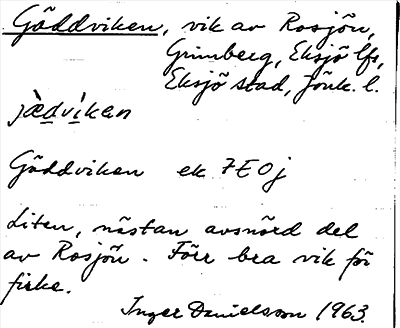 Gäddviken, vik av Rosjön,
Grimberg, Eksjö lfs,
Eksjö stad, Jönk. l.
jæ̀dvìkən
Gäddviken ek 7E0j
Liten, nästan avsnörd del
av Rosjön. Förr bra vik för
fiske.
Inger Danielsson 1963.